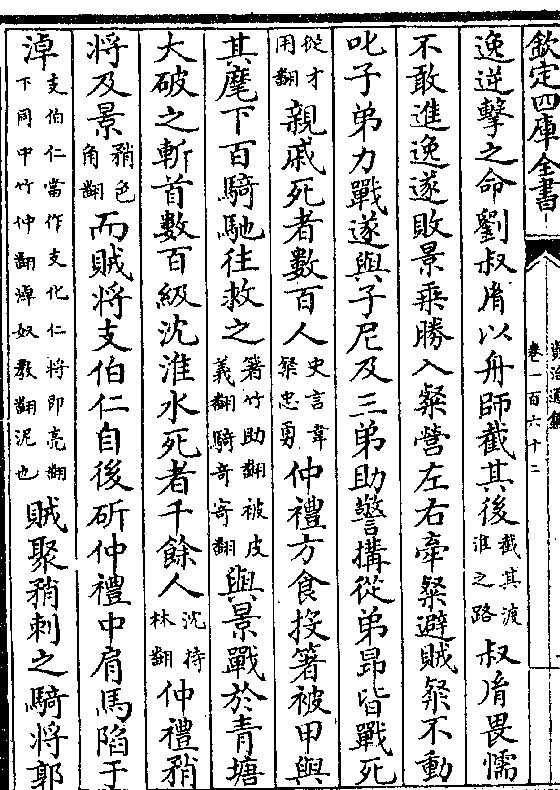 欽定四庫全書
資治通鑑
卷一百六十二
逸逆擊之命劉叔胤以舟師截其後截其渡淮之路叔胤畏懦
不敢進逸遂敗景乘勝入粲營左右牽粲避賊粲不動
叱子弟力戰遂與子尼及三弟助警搆從弟昂皆戰死
從才用翻親戚死者數百人史言韋粲忠勇仲禮方食投箸被甲與
其麾下百騎馳往救之箸竹助翻被皮義翻騎奇寄翻與景戰於青塘
大破之斬首數百級沈淮水死者千餘人沈持林翻仲禮矟
將及景矟色角翻而賊將支伯仁自後斫仲禮中肩馬陷于
淖支伯仁當作支化仁將即亮翻下同中竹仲翻淖奴教翻泥也賊聚矟刺之騎將郭